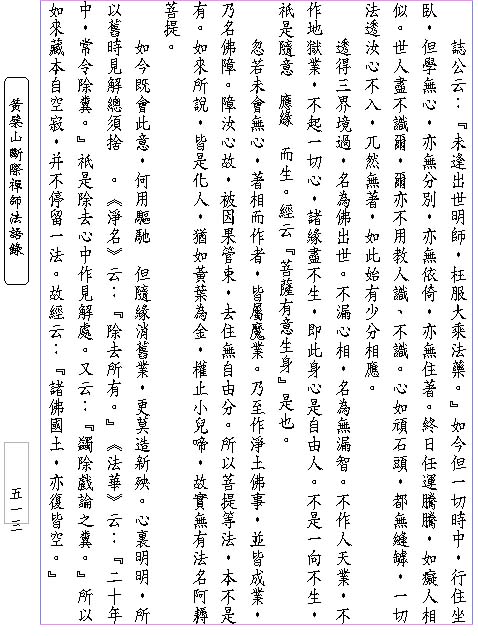 誌公云：『未逢出世明師，枉服大乘法藥。』如今但一切時中，行住坐
臥，但學無心，亦無分別，亦無依倚，亦無住著。終日任運騰騰，如癡人相
似。世人盡不識爾，爾亦不用教人識、不識。心如頑石頭，都無縫罅，一切
法透汝心不入，兀然無著，如此始有少分相應。
透得三界境過，名為佛出世。不漏心相，名為無漏智。不作人天業，不
作地獄業，不起一切心，諸緣盡不生，即此身心是自由人。不是一向不生，
祇是隨意 應緣 而生。經云『菩薩有意生身』是也。
忽若未會無心，著相而作者，皆屬魔業。乃至作淨土佛事，並皆成業，
乃名佛障。障汝心故，被因果管束，去住無自由分。所以菩提等法，本不是
有。如來所說，皆是化人，猶如黃葉為金，權止小兒啼，故實無有法名阿耨
菩提。
如今既會此意，何用驅馳 但隨緣消舊業，更莫造新殃。心裏明明，所
以舊時見解總須捨 。《淨名》云：『除去所有。』《法華》云：『二十年
中，常令除糞。』祇是除去心中作見解處。又云：『蠲除戲論之糞。』所以
如來藏本自空寂，并不停留一法。故經云：『諸佛國土，亦復皆空。』
黃檗山斷際禪師法語錄
五一三